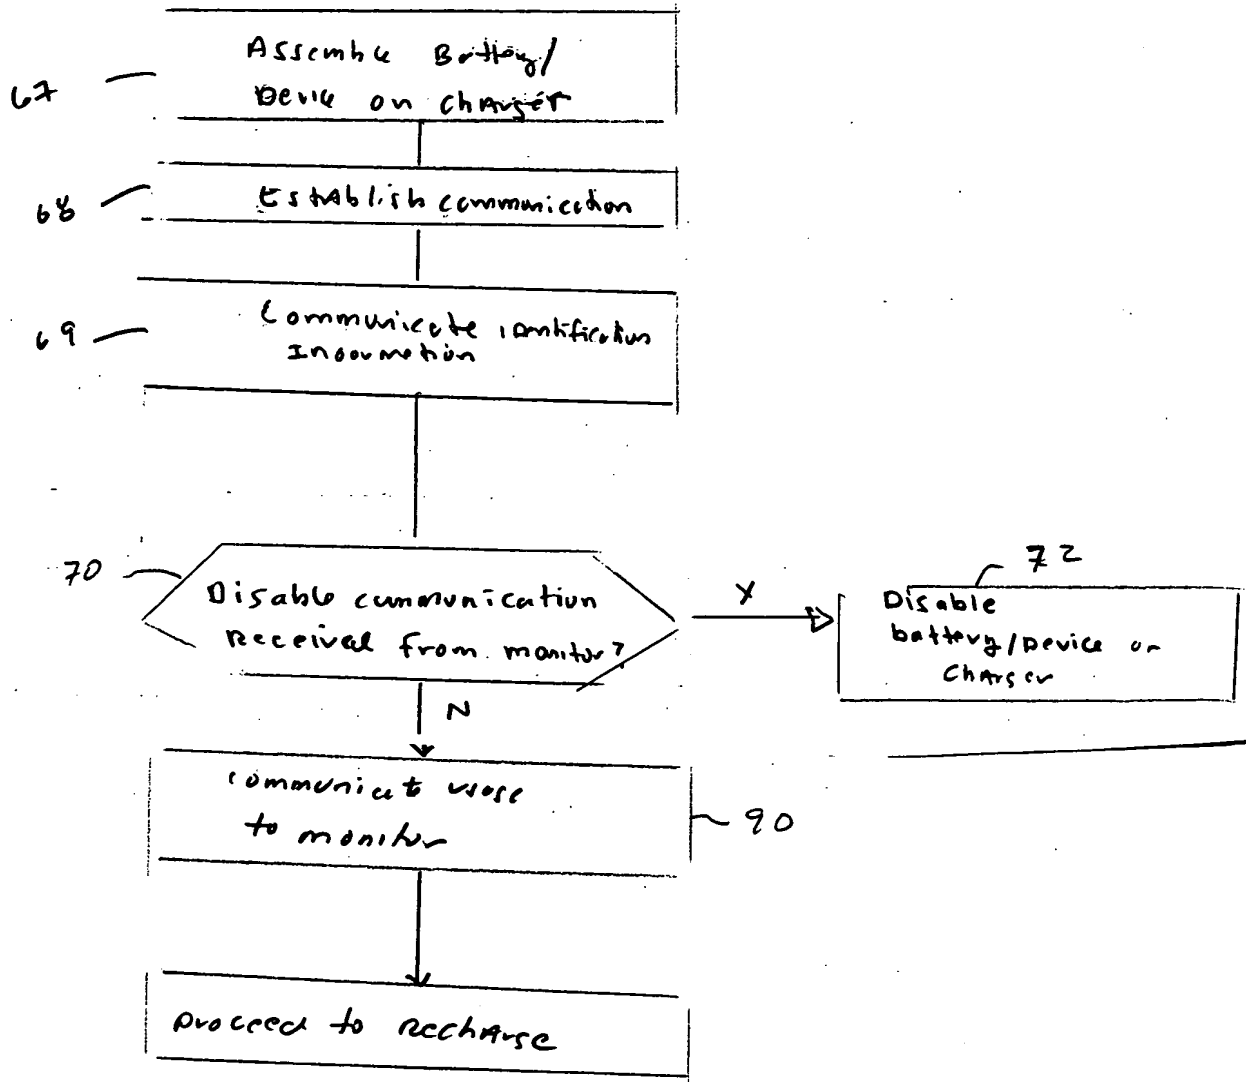 Assemble Battery/
67
Device on Charger
68
Establish communication
69
Communicate identification
Information
70
Disable communication
Received from monitor?
Y
72
Disable
battery/Device or
Charger
N
Communicate usage
to monitor
90
Proceed to Recharge